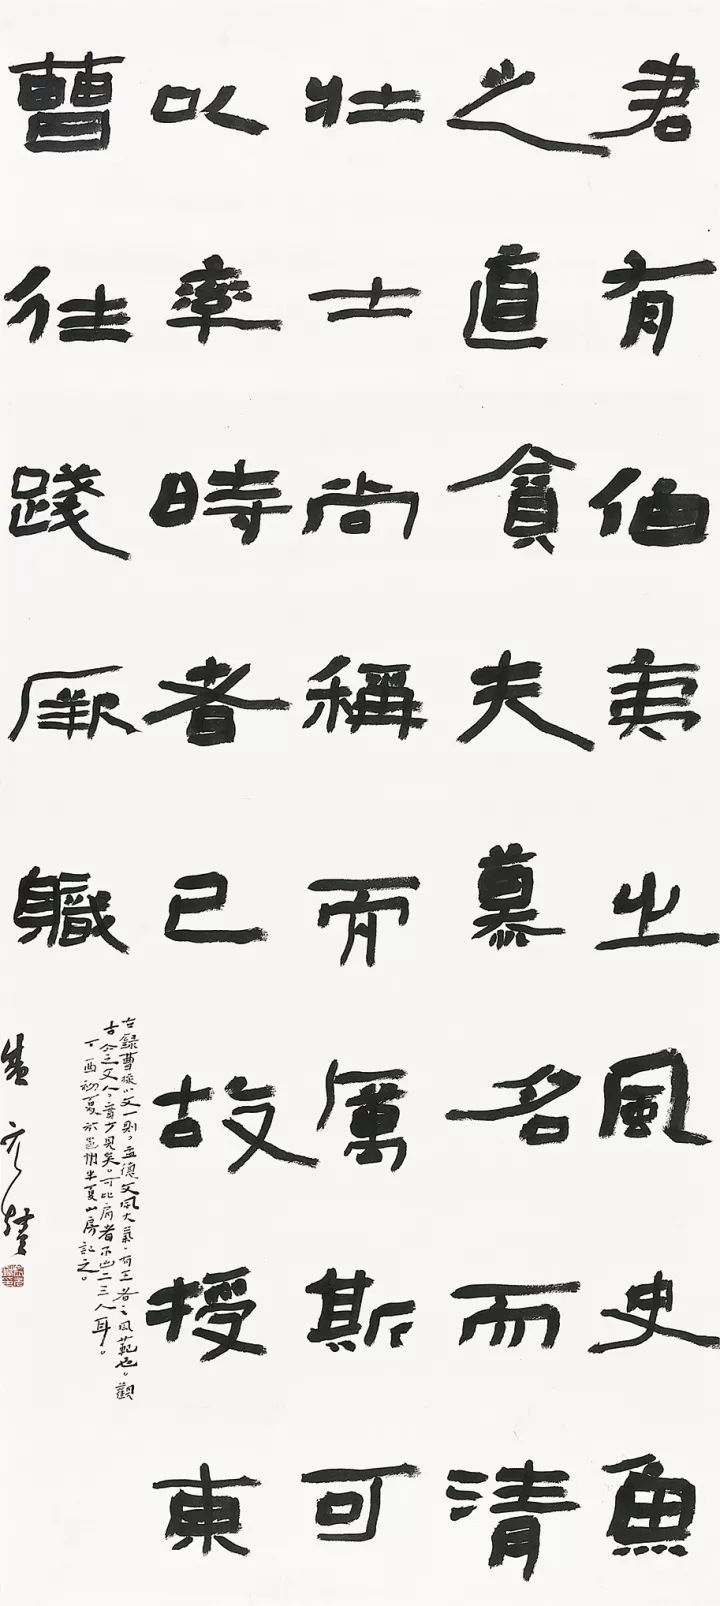 君有伯夷之風史魚
之直貪夫慕名而清
壯士尚稱而厲斯可
以率時者已故授東
曹往踐厥職
右錄曹操小文一則。孟德文風大氣。有王者之風範也。觀
古今之文人。首少見矣。可比肩者不出二三人耳。
丁酉初夏於邕州半夏山房記之。